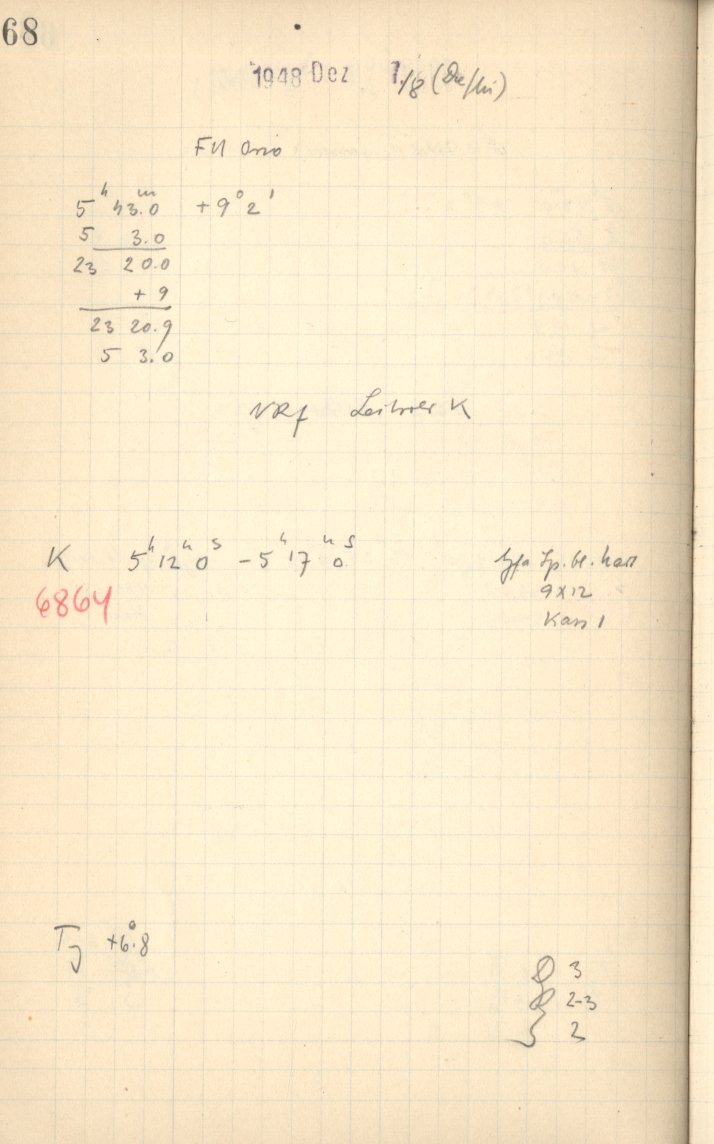 68
1948 Dez 7./8
FU Orio
5ʰ 43.0ᵐ +9° 2'
5 3.0
23 20.0
+ 9
23 20.9
5 3.0
NRf Leitrohr K
K 5ʰ 12ᵐ 0ˢ – 5ʰ 17ᵐ 0ˢ
6864
Agfa Sp. bl. hart
9x12
Kass 1
+6°.8
3
2-3
2